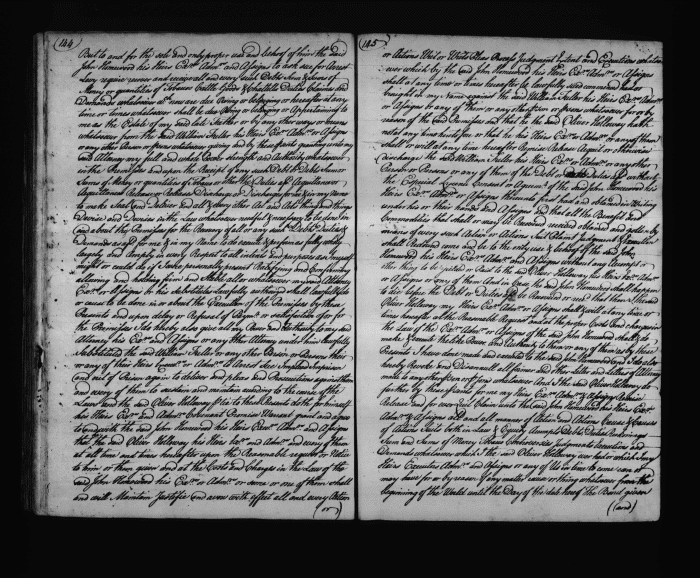 (144)
But to and for the sole and only proper use and behoof of him the said
John Homewood his Heirs Exrs. Admrs. and Assigns to ask sue for Arrest
Levy require recover and receive all and every such Debts Sum & Sums of
Money or quantities of Tobacco Cattle Goods & Chattells Duties Claims and
Demands whatsoever as now are due Owing or belonging or hereafter at any
time or times whatsoever shall be due Owing or belonging or Appertaining to
me as the Estate of my said late Father or by any other ways or means
whatsoever from the said William Fuller his Heirs Exrs. Admrs. or Assigns
or any other Person or persons whatsoever giving and by these presents granting unto my
said Attorney my full and whole Power Strength and Authority whatsoever
in the Premisses and upon the Receipt of any such Debt & Debts Sum or
Sums of Money or quantities of Tobacco or other the Duties Acquittance or
Acquittances Release or Releases Discharge or Discharges for me & in my name
to make Seal and Deliver and all & every other Act and Acts Thing and things
Device and Devices in the Law whatsoever needfull & necessary to be done in
and about the Premisses for the Recovery of all or any such Debts Duties &
Demands as for me & in my Name to do execute & perform as fully
largely and Amply in every Respect to all intents and purposes as I myself
might or could do if I were personally present Ratifying and Confirming
allowing and holding firm and Stable all & whatsoever my said Attorney
Exrs. or Assigns or his Substitutes lawfully authorised shall lawfully do
or cause to be done in or about the Execution of the Premisses by these
Presents and upon delay or Refusal of Paymt. or satisfaction of or for
the Premisses I do hereby also give all my Power and Authority to my said
Attorney his Exrs. and Assigns or any other Attorney under him lawfully
Substituted the said William Fuller or any other Person or Persons their
or any of their Heirs Exrs. or Admrs. to Arrest Sue Implead Imprison
and out of Prison again to deliver and pleas and Prosecutions against them
and every of them to sustain and maintain according to the course of the
Laws And the said Oliver Holloway do to these Presents do for myself
his Heirs Exrs. and Admrs. Covenant Promise Warrant Grant and agree
to and with the said John Homewood his Heirs Exrs. Admrs. and Assigns
that the said Oliver Holloway his Heirs Exrs. and Admrs. and every of them
at all time and times hereafter upon the Reasonable request or Notice
to him or them given and at the Costs and Charges in the Law of the
said John Homewood his Exrs. or Admrs. or some or one of them shall
and will Maintain Justifie and avow with effect all and every Action
(or)
(145)
or Actions Writ or Writs Pleas Process Judgment Extent and Executions whatsoe
ever which by the said John Homewood his Heirs Exrs. Admrs. or Assigns
shall at any time or times hereafter be lawfully commenced had or
brought in my name against the said William Fuller his Heirs Exrs. Admrs.
or Assigns or any of them or any other person or persons whatsoever for or by
reason of the said Premisses and that he the said Oliver Holloway hath
not at any time heretofore or that he his Heirs Exrs. Admrs. or any of them
shall or will at any time hereafter Remise Release Acquit or otherwise
Discharge the said William Fuller his Heirs Exrs. Admrs. or any other
Person or Persons or any of them of the Debt or Duties without
the Especial Licence Consent or Agreemt. of the said John Homewood his
Heirs Exrs. Admrs. or Assigns thereunto first had and obtained in Writing
under his or their hands and Seals and that all the Benefit and
Commodities that shall or may be Received recovered obtained and gotten by
means of every such Action or Actions Suit Actions Judgment & Execution
shall Redound come and be to the only use & behoof of the said John
Homewood his Heirs Exrs. Admrs. and Assigns without any Account or
other thing to be yielded or Paid to the said Oliver Holloway his Heirs Exrs. Admrs.
or Assigns or any of them And in Case the said John Homewood shall happen
to die before the Debts or Duties be Recovered or recd. that then I the said
Oliver Holloway my Heirs Exrs. Admrs. or Assigns shall & will at any time or
times hereafter at the Reasonable Request and at the proper Costs and charges in
the Law of the Exrs. Admrs. or Assigns of the said John Homewood shall & do
make & execute the like Power and Authority to them or any of them as by these
Presents I have done made and executed to the said John Homewood And I do also
hereby Revoke and Disannull all former and other Letter and Letters of Attorney
made to any other person or persons whatsoever And I the said Oliver Holloway do
further by these Presents for me my Heirs Exrs. Admrs. & Assigns Remise
Release and for ever Quit Claim unto the said John Homewood his Heirs Exrs.
Admrs. & Assigns all and all manner of Action and Actions Cause & Causes
of Action Suits both in Law & Equity Accompts Debts Duties Reckonings
Sum and Sums of Money Strifes Controversies Judgments Executions and
Demands whatsoever which I the said Oliver Holloway ever had or which my
Heirs Executors Admrs. and Assigns or any of Us in time to come can or
may have for or by reason of any matter cause or thing whatsoever from the
beginning of the World until the Day of the date hereof the Bond given
(and)